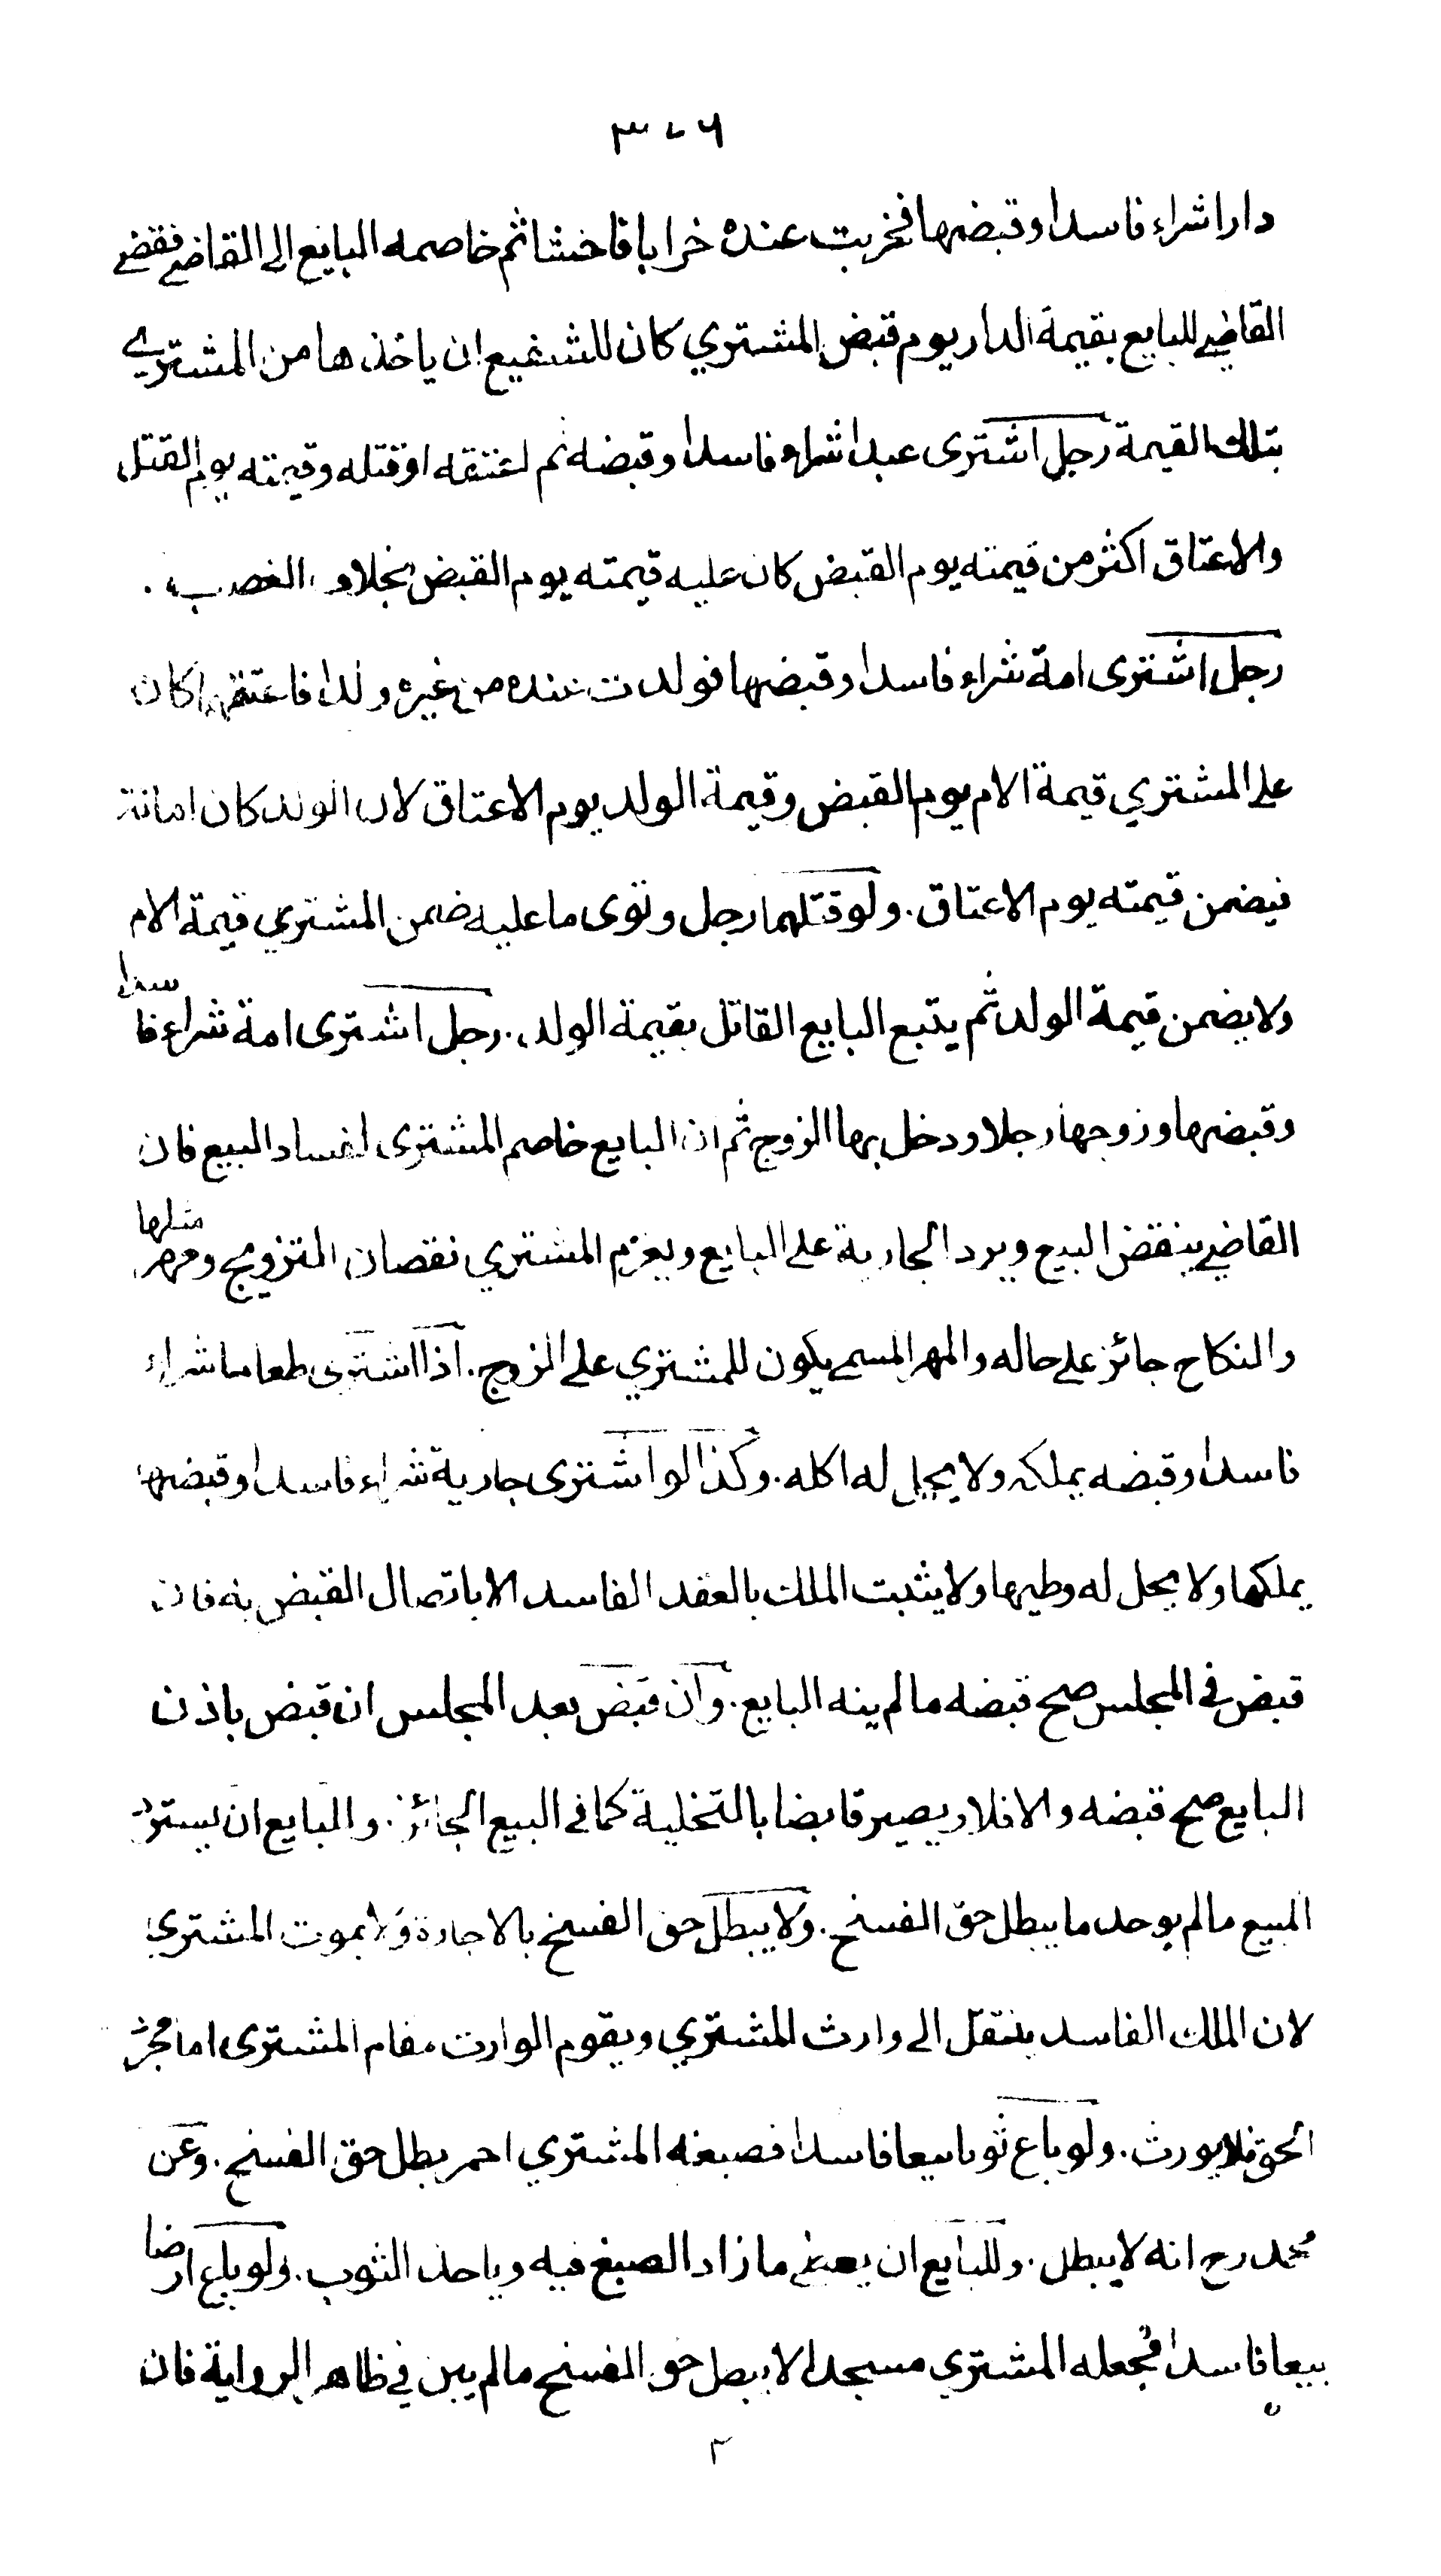 ٣٠٦
دارا شراء فاسدا وقبضها فخربت عنده خرابا فاحشا ثم خاصمه البايع الى القاضي فقضى
القاضي للبايع بقيمة الدار يوم قبض المشتري كان للشفيع ان ياخذها من المشتري
بتلك القيمة رجل اشترى عبدا شراء فاسدا وقبضه ثم اعتقه او قتله وقيمته يوم القتل
والاعتاق اكثر من قيمته يوم القبض كان عليه قيمته يوم القبض بخلاف الغصب .
رجل اشترى امة شراء فاسدا وقبضها فولدت عنده من غيره ولدا فاعتقهما كان
على المشتري قيمة الام يوم القبض وقيمة الولد يوم الاعتاق لان الولد كان امانة
فيضمن قيمته يوم الاعتاق . ولو قتلهما رجل وتوى ما عليه ضمن المشتري قيمة الام
ولا يضمن قيمة الولد ثم يتبع البايع القاتل بقيمة الولد . رجل اشترى امة شراء فاسدا
وقبضها وزوجها رجلا ودخل بها الزوج ثم ان البايع خاصم المشترى لفساد البيع فان
القاضي ينقض البيع ويرد الجارية على البايع ويغرم المشتري نقصان التزويج ومهر مثلها
والنكاح جائز على حاله والمهر المسمى يكون للمشتري على الزوج . اذا اشترى طعاما شراء
فاسدا وقبضه يملكه ولا يحل له اكله . وكذا لو اشترى جارية شراء فاسدا وقبضها
يملكها ولا يحل له وطيها ولا يثبت الملك بالعقد الفاسد الا باتصال القبض به فان
قبض في المجلس صح قبضه ما لم ينه البايع . وان قبض بعد المجلس ان قبض باذن
البايع صح قبضه والا فلا ويصير قابضا بالتخلية كما في البيع الجائز . والبايع ان يسترد
المبيع ما لم يوجد ما يبطل حق الفسخ . ولا يبطل حق الفسخ بالاجارة ولا بموت المشتري
لان الملك الفاسد ينتقل الى وارث المشتري ويقوم الوارث مقام المشترى اما مجرد
الحق فلا يورث . ولو باع ثوبا بيعا فاسدا فصبغه المشتري احمر بطل حق الفسخ . وعن
محمد رح انه لا يبطل . وللبايع ان يعطي ما زاد الصبغ فيه وياخذ الثوب . ولو باع ارضا
بيعا فاسدا فجعله المشتري مسجدا لا يبطل حق الفسخ ما لم يبن في ظاهر الرواية فان
٢